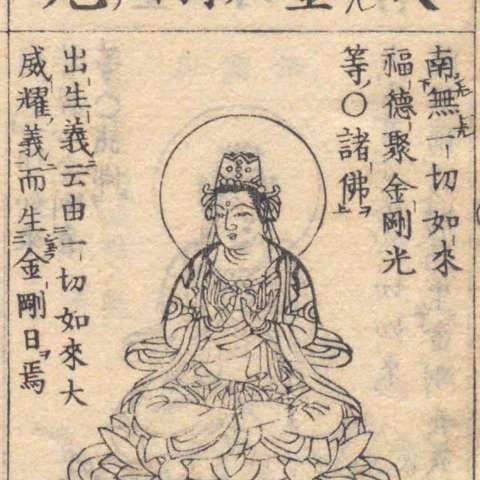 南無一切如來
福德聚金剛光
等○諸佛
出生義云由一切如來大
威耀義而生金剛日焉